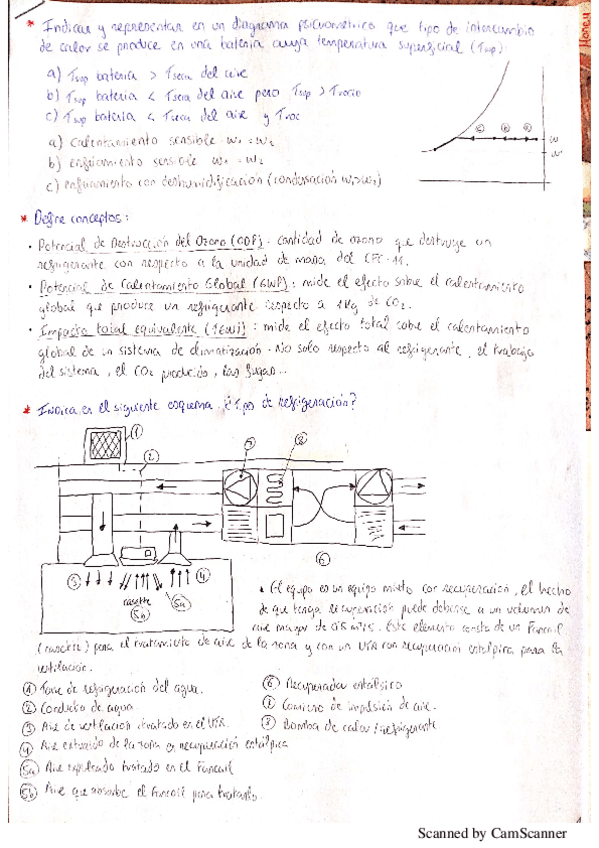 * Indicar y representar en un diagrama psicrométrico que tipo de intercambio
de calor se produce en una batería cuya temperatura superficial (Tsup)
a) Tsup batería > Tseca del aire
b) Tsup batería < Tseca del aire pero Tsup > Trocio
c) Tsup batería < Tseca del aire y Troc
a) Calentamiento sensible w1 = w2
b) enfriamiento sensible w1 = w2
c) enfriamiento con deshumidificación (condensación w1>w2)
c b a
w
w'
* Define conceptos:
· Potencial de Destrucción del Ozono (ODP): cantidad de ozono que destruye un
refrigerante con respecto a la unidad de masa del CFC-11.
· Potencial de Calentamiento Global (GWP): mide el efecto sobre el calentamiento
global que produce un refrigerante respecto a 1Kg de CO2.
· Impacto total equivalente (TEWI): mide el efecto total sobre el calentamiento
global de un sistema de climatización. No solo respecto al refrigerante, el trabajo
del sistema, el CO2 producido, las fugas...
* Indica en el siguiente esquema ¿Tipo de refrigeración?
1
2
7
8
3
4
casette
5b
5a
6
• El equipo es un equipo mixto con recuperación, el hecho
de que tenga recuperación puede deberse a un volumen de
aire mayor de 0'5 m3/s. Este elemento consta de un Fancoil
(casette) para el tratamiento de aire de la zona y con un UTA con recuperación entálpica para la
ventilación.
1 Torre de refrigeración del agua.
2 Conducto de agua
3 Aire de ventilación tratado en el UTA.
4 Aire extraido de la zona a recuperación entálpica
5a Aire expulsado tratado en el Fancoil
5b Aire que absorbe el Fancoil para tratarlo.
6 Recuperador entálpico
7 Comienzo de impulsión de aire.
8 Bomba de calor / refrigerante
Honey
Scanned by CamScanner